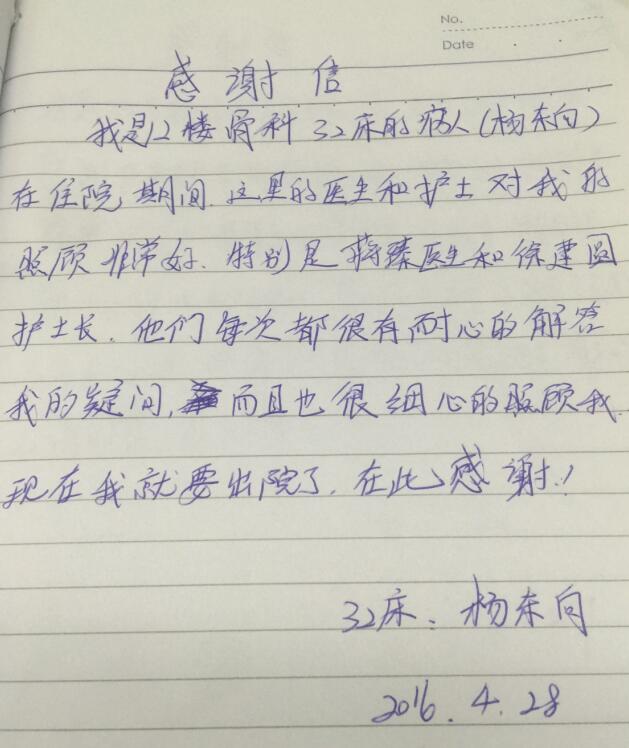 No.
Date
感谢信
我是12楼骨科32床的病人(杨东向)
在住院期间.这里的医生和护士对我的
照顾非常好.特别是蒋臻医生和徐建圆
护士长.他们每次都很有耐心的解答
我的疑问,而且也很细心的照顾我.
现在我就要出院了.在此感谢!
32床:杨东向
2016.4.28